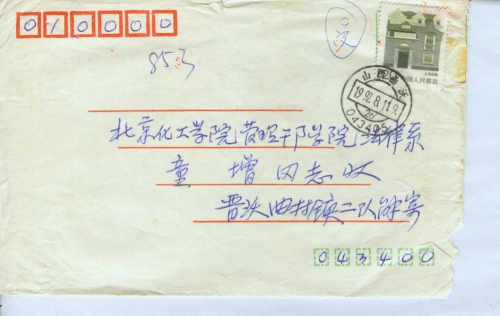 010000
853
中国人民邮政
山西曲沃
1992.8.11.9
043400
北京化大学院管理干部学院法律系
童增同志收
晋沃曲村镇二队
043400